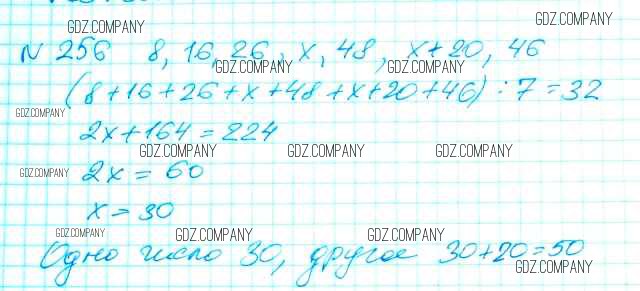 GDZ.COMPANY GDZ.COMPANY
N 256 8, 16, 26, x, 48, x+20, 46
GDZ.COMPANY GDZ.COMPANY
(8+16+26+x+48+x+20+46) : 7 = 32
GDZ.COMPANY
2x+164=224
GDZ.COMPANY GDZ.COMPANY GDZ.COMPANY
2x = 60
GDZ.COMPANY
x = 30
GDZ.COMPANY GDZ.COMPANY GDZ.COMPANY
Одно число 30, другое 30+20=50
GDZ.COMPANY